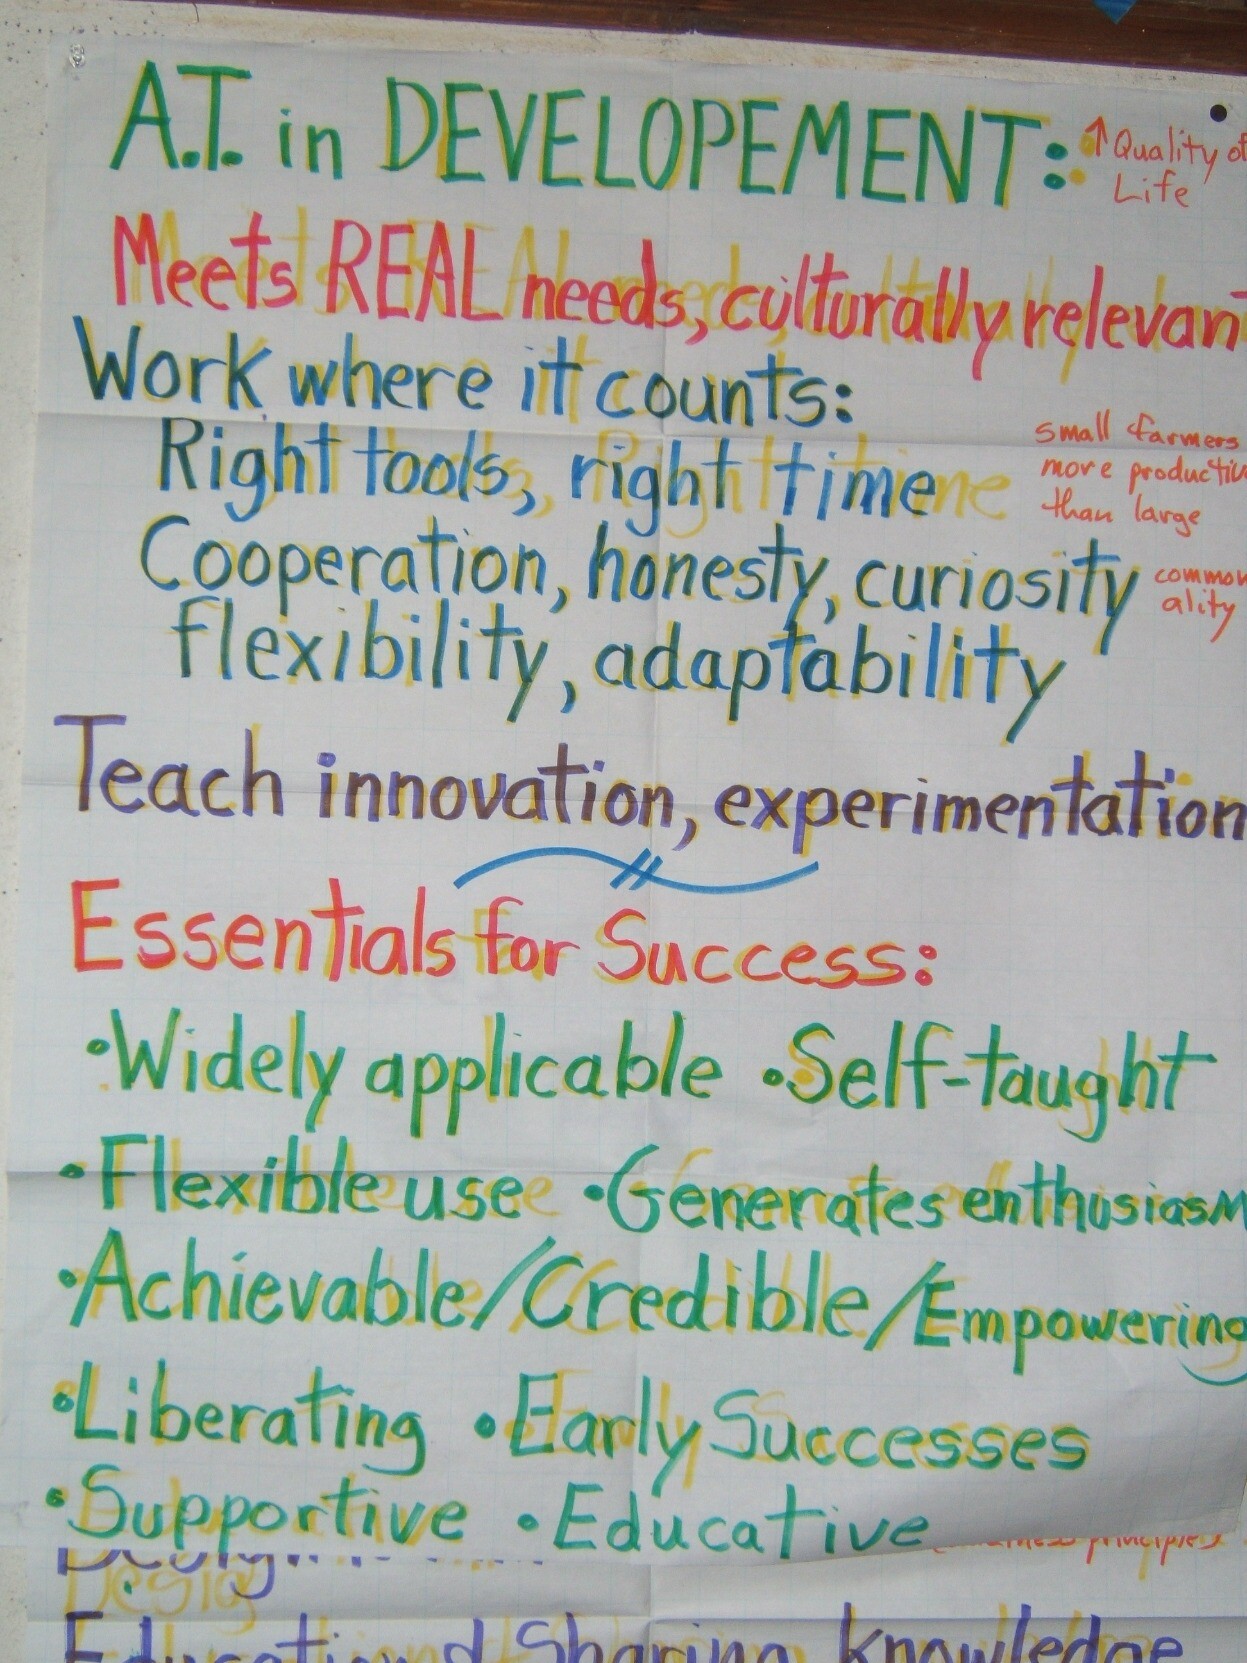 A.T. in DEVELOPEMENT: ↑ Quality of
Life
Meets REAL needs, culturally relevant
Work where it counts:
Right tools, right time
small farmers
more productive
than large
Cooperation, honesty, curiosity
common
ality
flexibility, adaptability
Teach innovation, experimentation
Essentials for Success:
•Widely applicable •Self-taught
•Flexible use •Generates enthusiasm
•Achievable/Credible/Empowering
•Liberating •Early Successes
•Supportive •Educative
principles
Design
Education Sharing knowledge